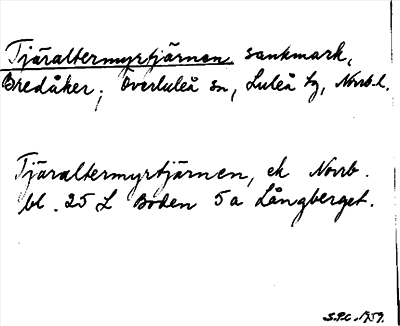 Tjäraltermyrtjärnen, sankmark,
Bredåker, Överluleå sn, Luleå tg, Norrb.l.
Tjäraltermyrtjärnen, ek Norrb.
bl. 25 L Boden 5a Långberget.
S.P.C. 1959.